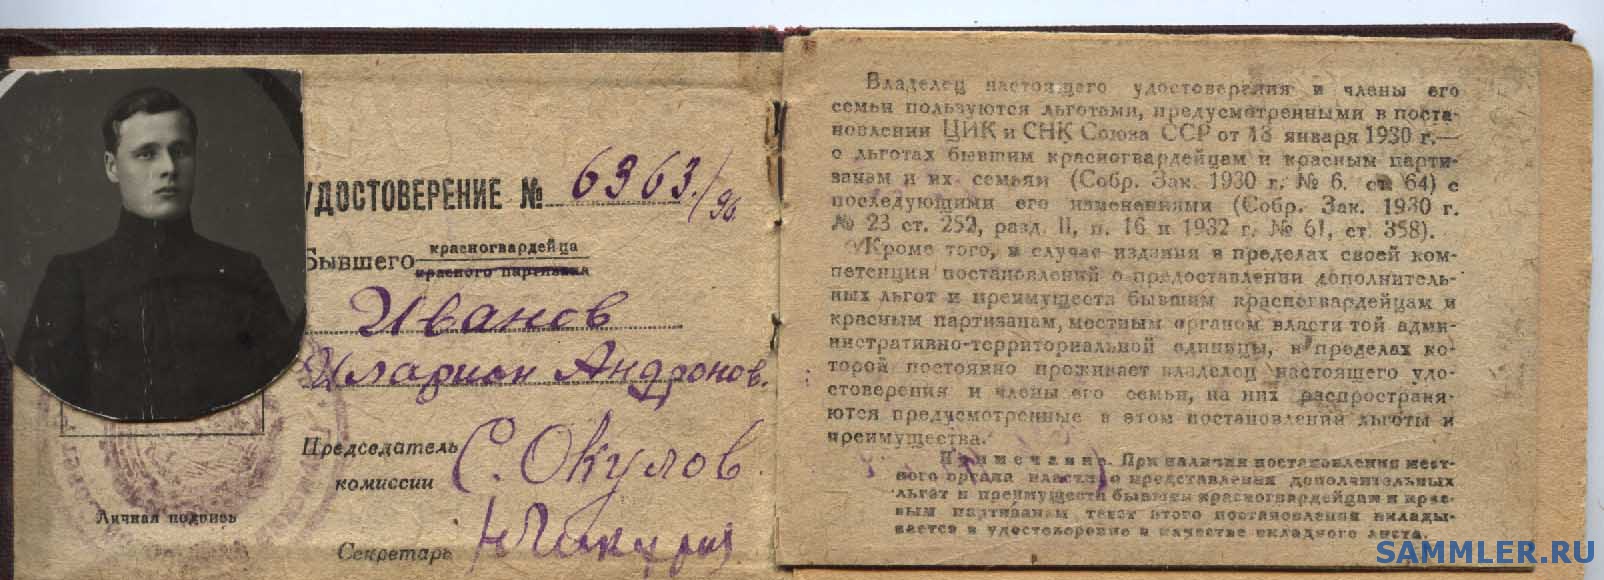 УДОСТОВЕРЕНИЕ № 6363/96
Бывшего красногвардейца
красного партизана
Иванов
Иларион Андронов.
Председатель
комиссии
С. Окулов
Личная подпись
Секретарь
Владелец настоящего удостоверения и члены его
семьи пользуются льготами, предусмотренными в поста-
новлении ЦИК и СНК Союза ССР от 13 января 1930 г.—
о льготах бывшим красногвардейцам и красным парти-
занам и их семьям (Собр. Зак. 1930 г. № 6. ст. 64) с
последующими его изменениями (Собр. Зак. 1930 г.
№ 23 ст. 252, разд. II, п. 16 и 1932 г. № 61, ст. 358).
Кроме того, в случае издания в пределах своей ком-
петенции постановлений о предоставлении дополнитель-
ных льгот и преимуществ бывшим красногвардейцам и
красным партизанам, местным органом власти той адми-
нистративно-территориальной единицы, в пределах ко-
торой постоянно проживает владелец настоящего удо-
стоверения и члены его семьи, на них распространя-
ются предусмотренные в этом постановлении льготы и
преимущества.
Примечание. При наличии постановления мест-
ного органа власти о представлении дополнительных
льгот и преимуществ бывшим красногвардейцам и крас-
ным партизанам текст этого постановления вклады-
вается в удостоверение в качестве вкладного листа.
SAMMLER.RU